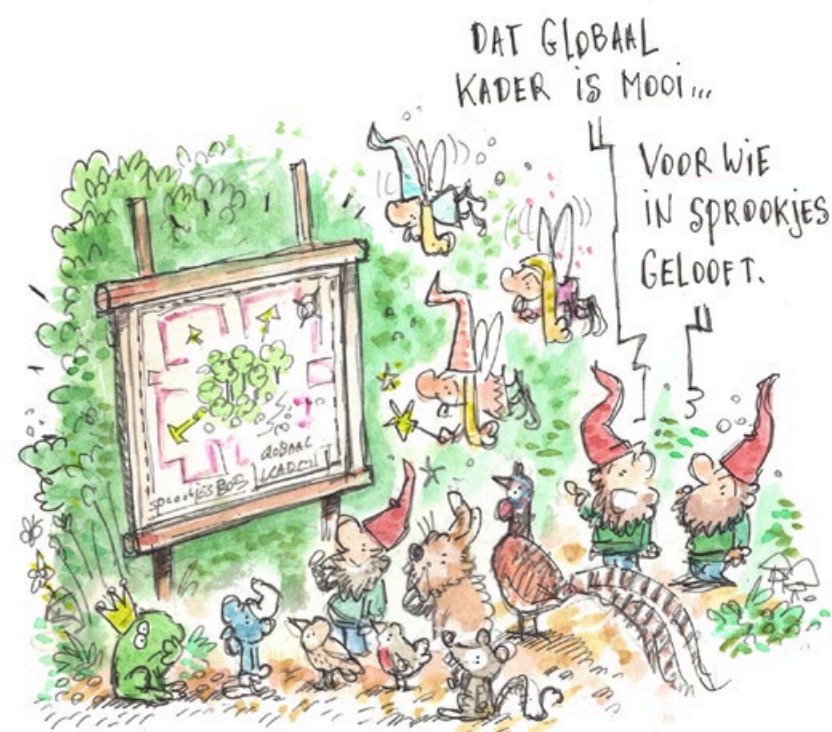 DAT GLOBAAL
KADER iS MOOi...
VOOR WiE
iN SPROOKJES
GELOOFT.
SPROOKJES BOS
GLOBAAL
KADER